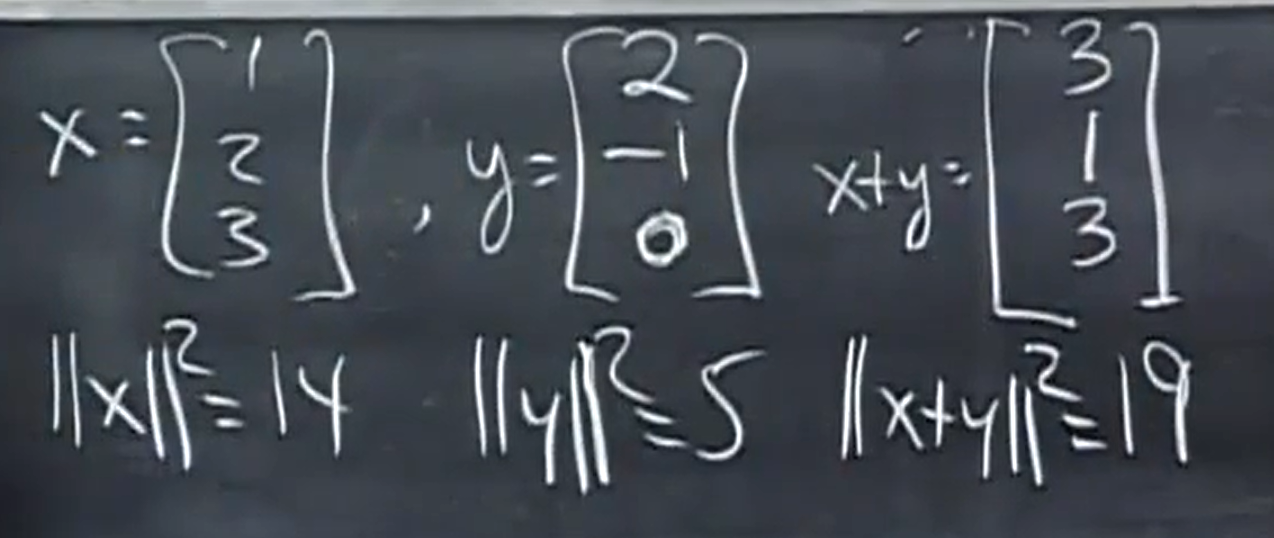 x = [1 2 3], y = [2 -1 0] x+y = [3 1 3]
||x||² = 14 ||y||² = 5 ||x+y||² = 19